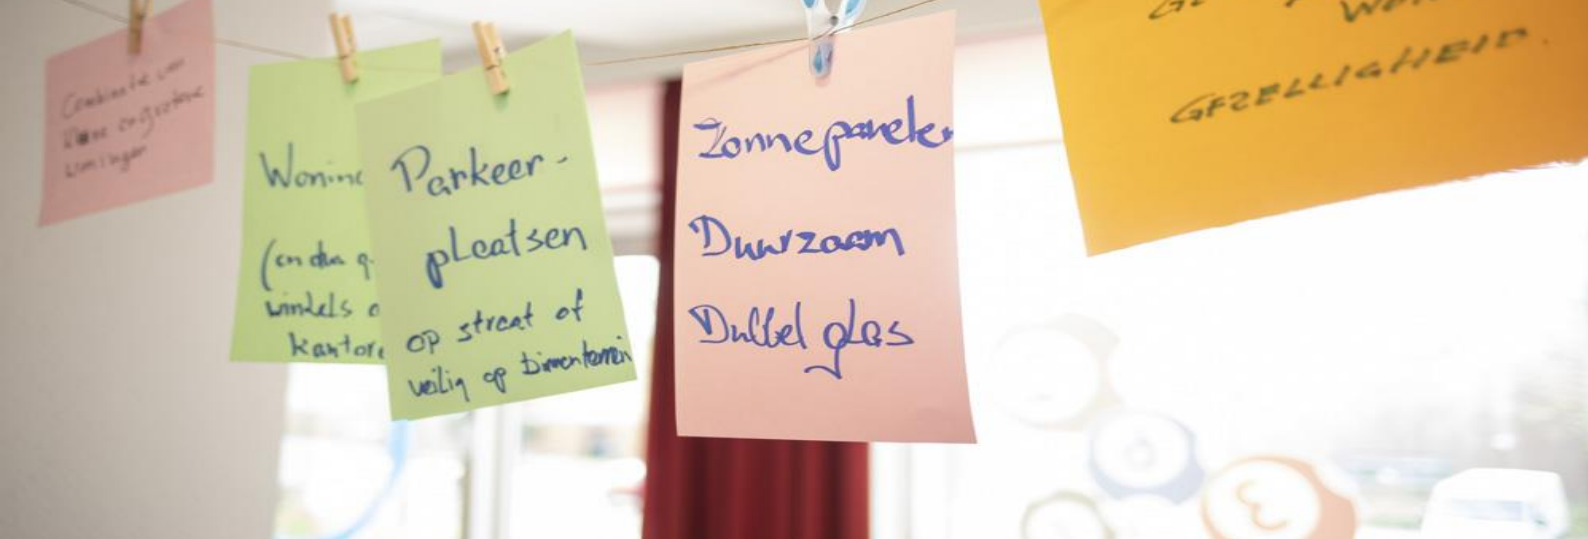 Combinatie van
kleine en grotere
woningen
Wonin
(en dus g
winkels o
kantore
Parkeer-
plaatsen
op straat of
veilig op binnenterrein
Zonnepanelen
Duurzaam
Dubbel glas
GEZELLIGHEID.
3